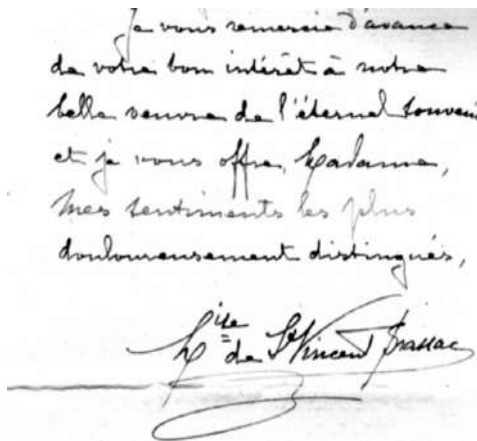 Je vous remercie d'avance
de votre bon intérêt à notre
belle oeuvre de l'éternel souvenir
et je vous offre, Madame,
mes sentiments les plus
douloureusement distingués,
Mise de St Vincent Brassac